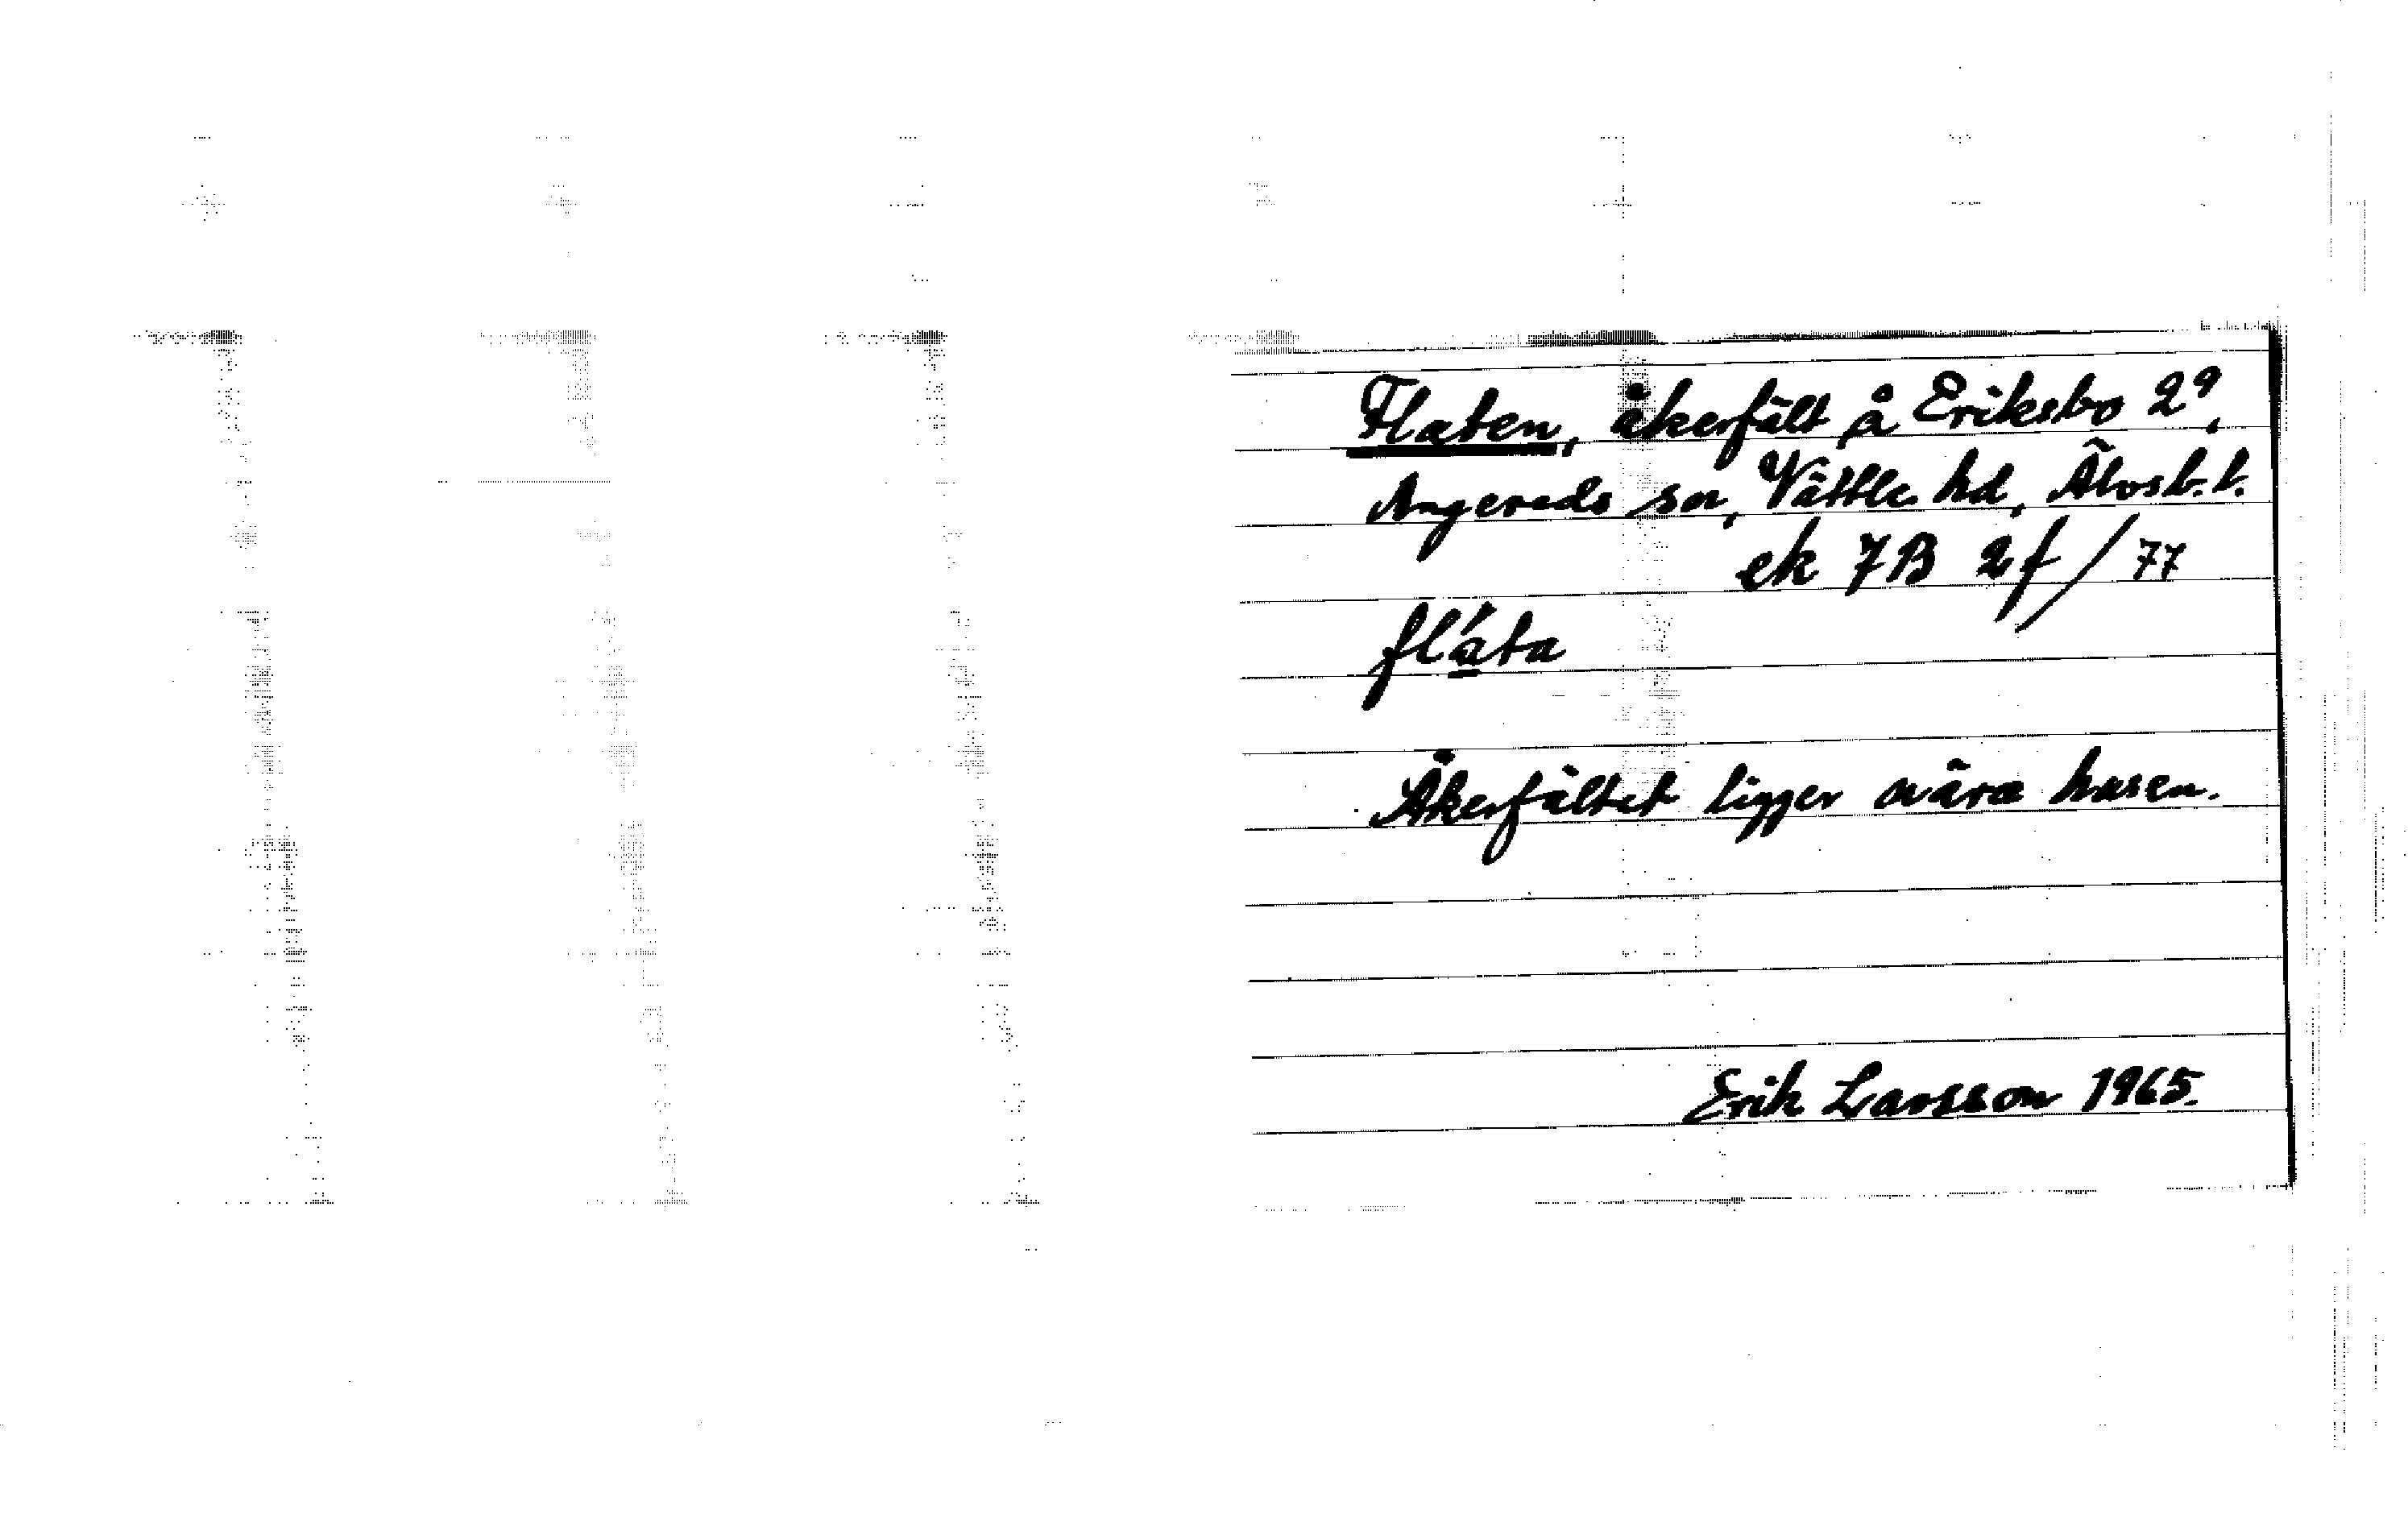 Flaten, åkerfält å Eriksbo 2⁹,
Angereds sn, Vättle hd, Älvsb. l.
ek 7B 2f/77
flá̱ta
Åkerfältet ligger nära husen.
Erik Larsson 1965.